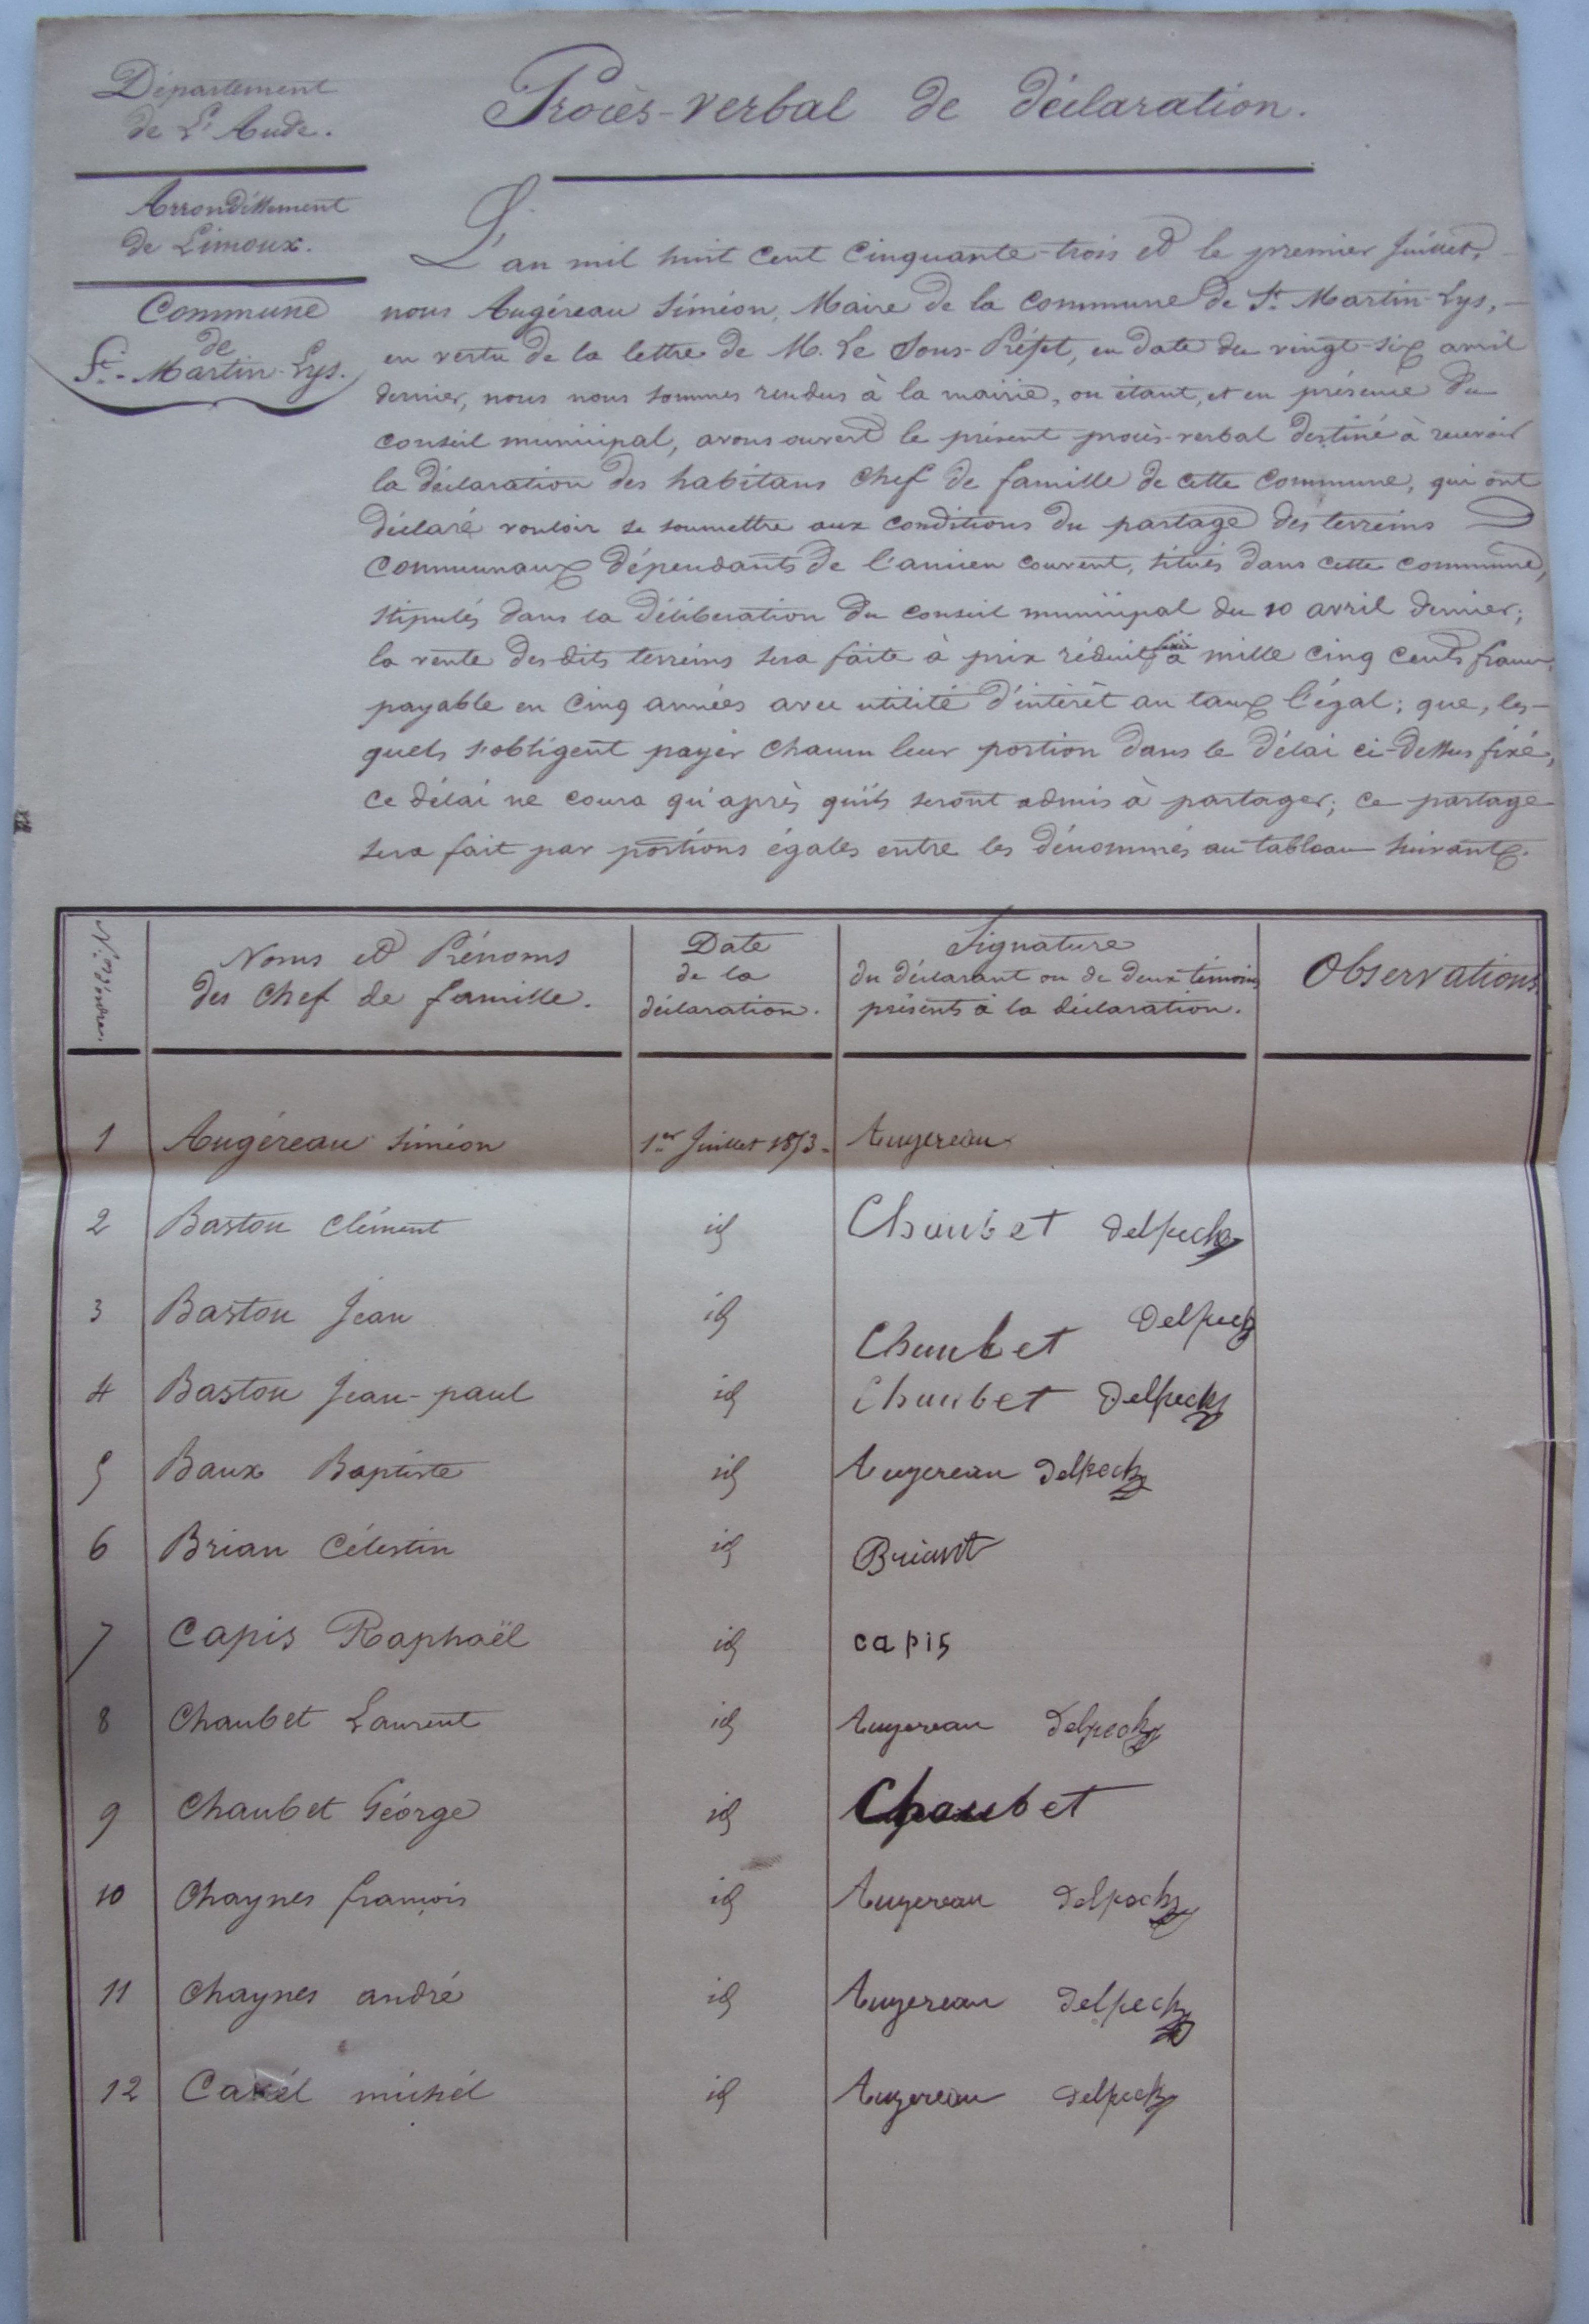 Département
de L'Aude.
Arrondissement
de Limoux.
Commune
de
St.-Martin-Lys.
Procès-verbal de déclaration.
L'an mil huit cent cinquante-trois et le premier Juillet,
nous Augéreau Siméon, Maire de la commune de St. Martin-Lys,
en vertu de la lettre de M. Le Sous-Préfet, en date du vingt-six avril
dernier, nous nous sommes rendus à la mairie, ou étant, et en présence du
conseil municipal, avons ouvert le présent procès-verbal destiné à recevoir
la déclaration des habitans chef de famille de cette commune, qui ont
déclaré vouloir se soumettre aux conditions du partage des terreins
communaux dépendants de l'ancien couvent, situés dans cette commune,
stipulés dans la délibération du conseil municipal du 10 avril dernier;
la vente des dits terreins sera faite à prix réduit fixé à mille cinq cents francs,
payable en cinq années avec utilité d'intérêt au taux légal; que, les-
quels s'obligent payer chacun leur portion dans le délai ci-dessus fixé,
ce délai ne coura qu'après qu'ils seront admis à partager; ce partage
sera fait par portions égales entre les dénommés au tableau suivant.
N.os d'ordre. Noms et Prénoms des chef de famille. Date de la déclaration. Signature du déclarant ou de deux témoins présents à la déclaration. Observations.
1 Augéreau Siméon 1er Juillet 1853. Augereau
2 Bastou Clément id Chaubet Delpech
3 Bastou Jean id Chaubet Delpech
4 Bastou Jean-paul id Chaubet Delpech
5 Baux Baptiste id Augereau Delpech
6 Brian Célestin id Briant
7 Capis Raphaël id capis
8 Chaubet Laurent id Augereau Delpech
9 Chaubet Géorge id Chaubet
10 Chaynes françois id Augereau Delpech
11 Chaynes andré id Augereau Delpech
12 michél id Augereau Delpech